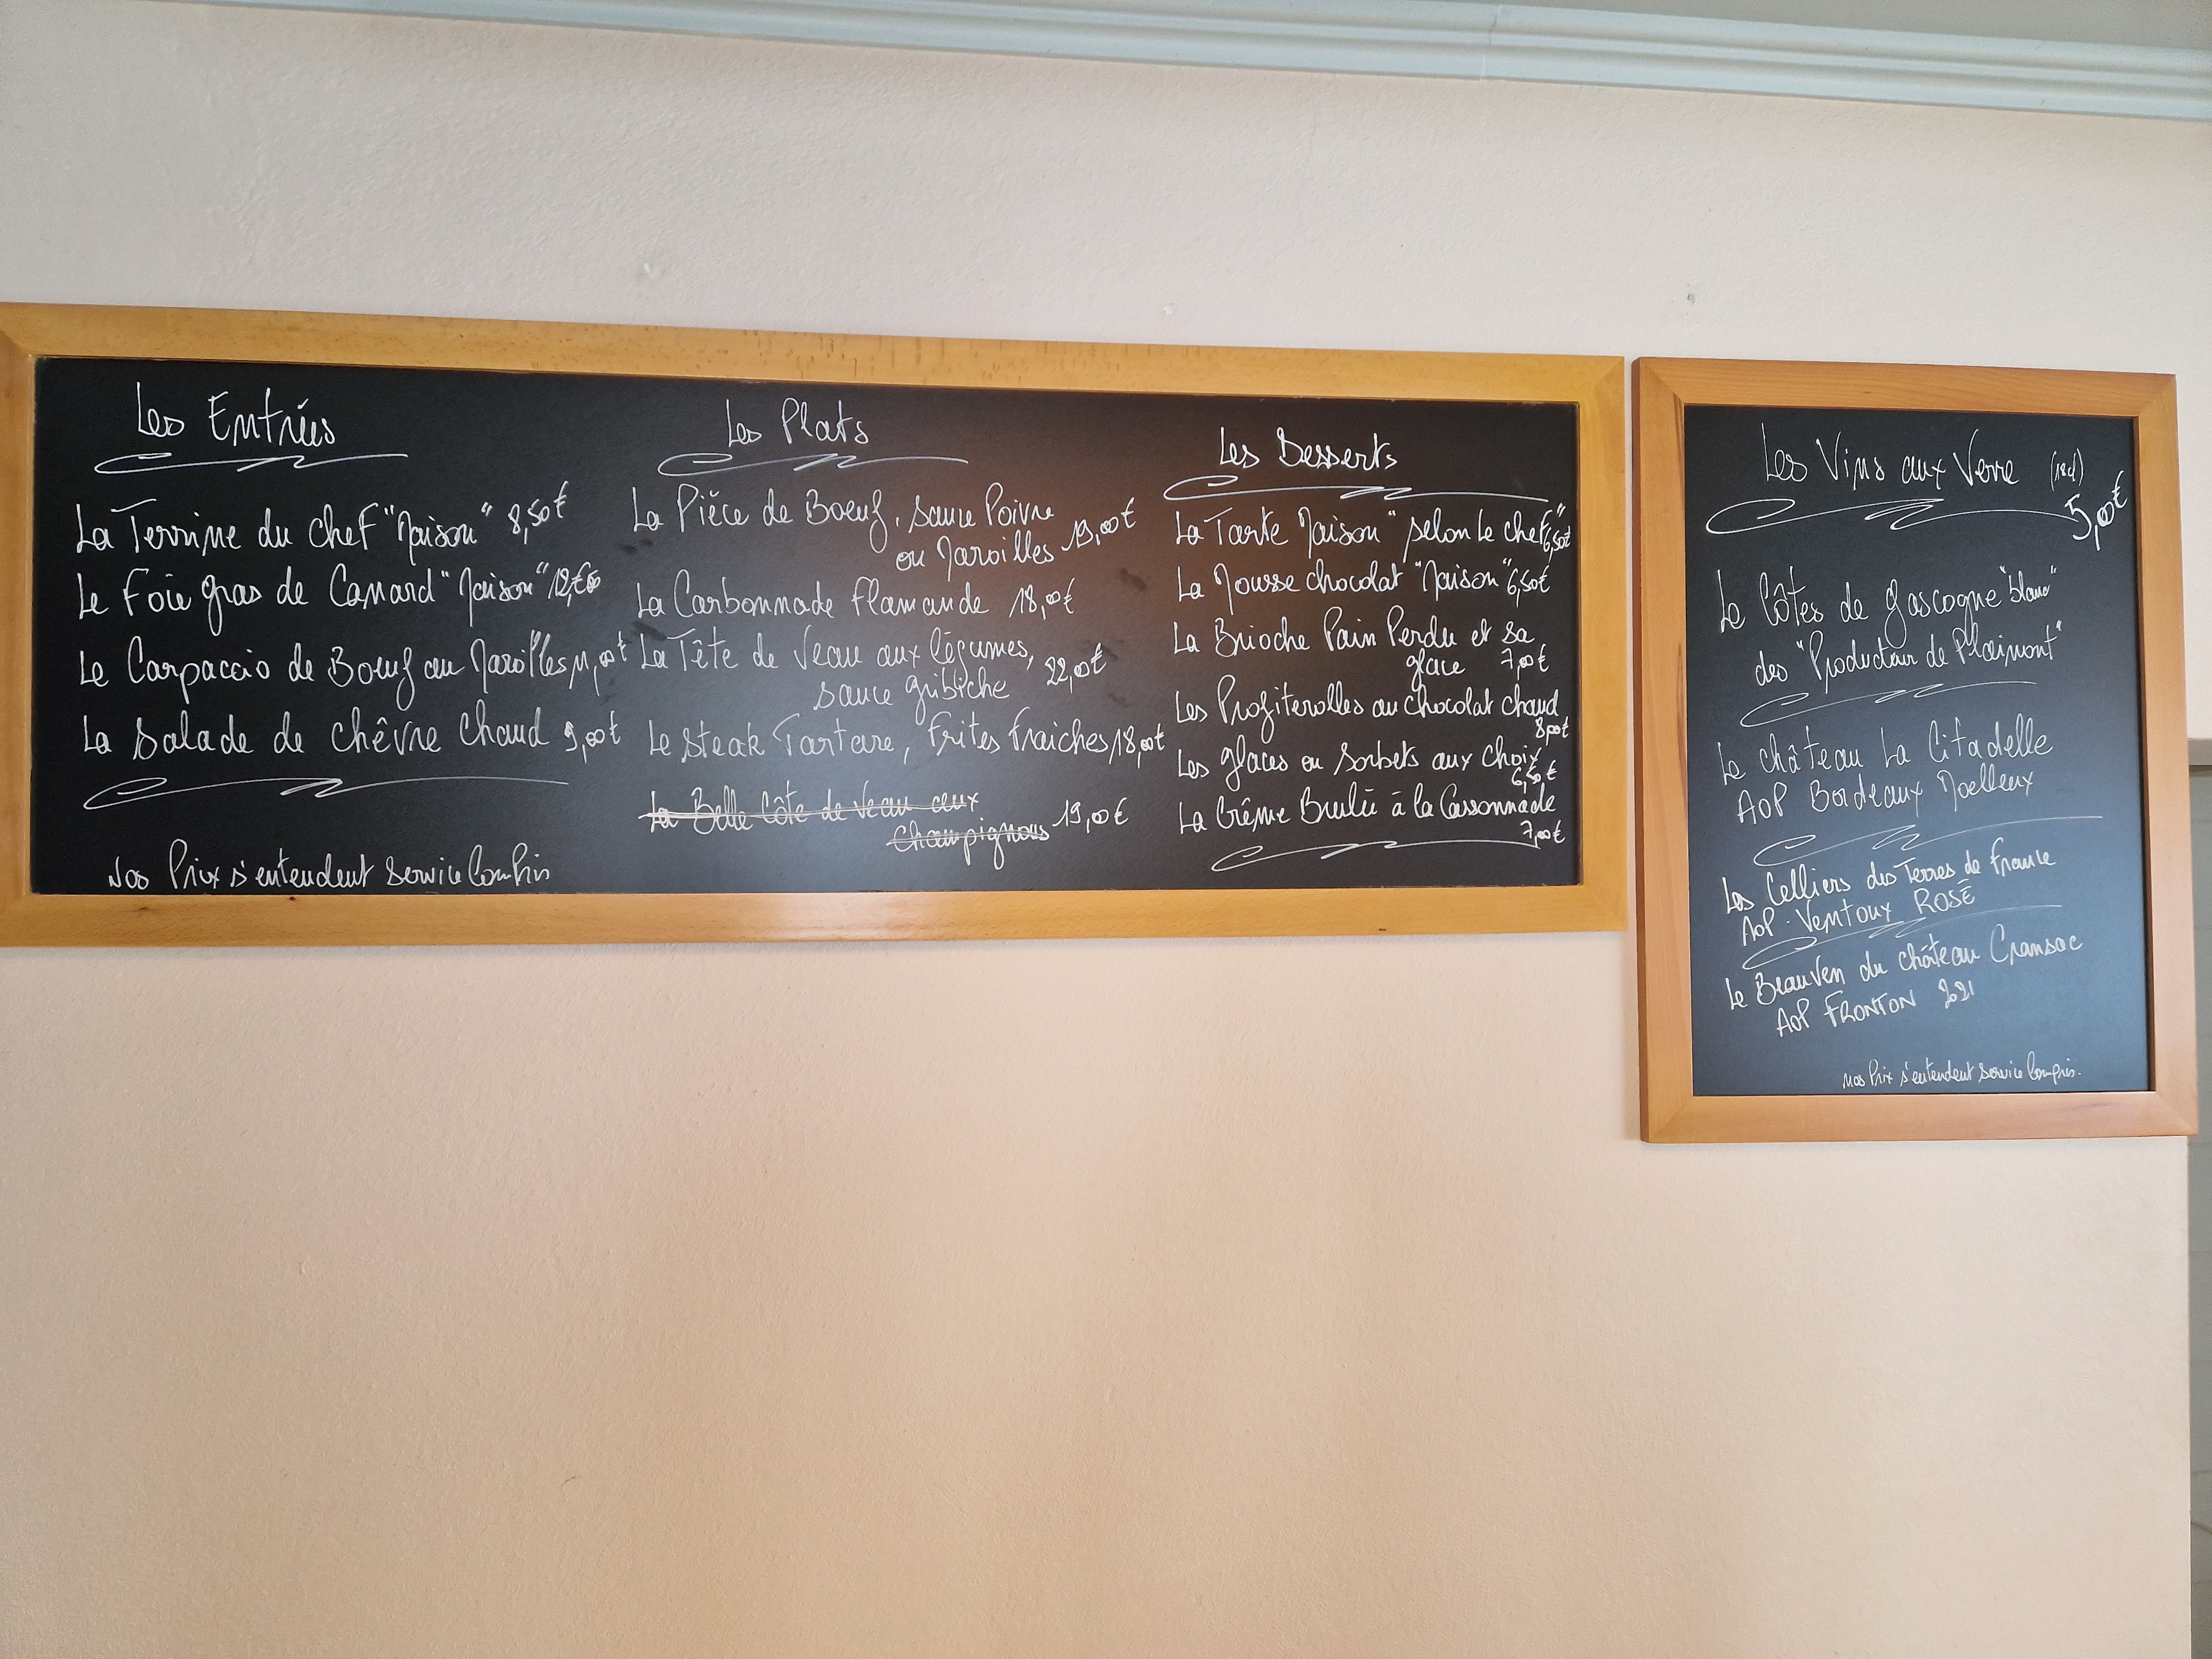 Les Entrées
La Terrine du chef "Maison" 8,50€
Le Foie gras de Canard "Maison" 12,00
Le Carpaccio de Boeuf au Maroilles 11,00€
La Salade de chêvre Chaud 9,00€
Nos Prix s'entendent Service Compris
Les Plats
La Pièce de Boeuf, sauce Poivre
ou Maroilles 19,00€
La Carbonnade Flamande 18,00€
La Tête de Veau aux légumes,
sauce gribiche 22,00€
Le Steak Tartare, Frites Fraiches 18,00€
La Belle Côte de Veau aux
Champignons 19,00€
Les Desserts
La Tarte Maison "selon Le chef" 6,50€
La Mousse chocolat "Maison" 6,50€
La Brioche Pain Perdu et sa
glace 7,00€
Les Profiterolles au chocolat chaud
8,00€
Les glaces ou Sorbets aux Choix
6,50€
La Crême Brulée à la Cassonnade
7,00€
Les Vins aux Verre
5,00€
Le Côtes de gascogne "blanc"
des "Producteur de Plaimont"
Le château La Citadelle
AOP Bordeaux Moelleux
Les Celliers des Terres de France
AOP Ventoux ROSÉ
Le BeauVen du château Cransac
AOP FRONTON 2021
Nos Prix s'entendent Service Compris.